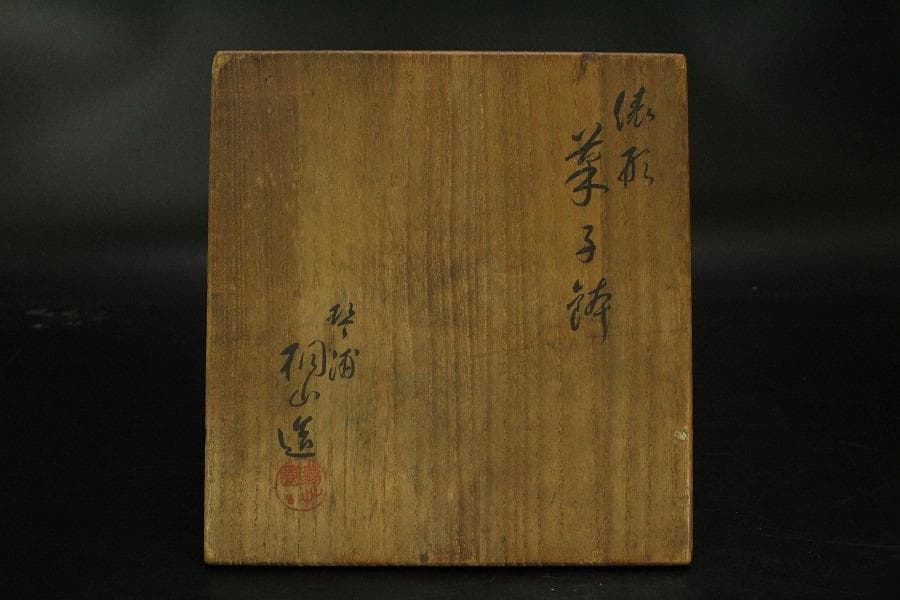 俵形
菓子鉢
琴浦
桐山造